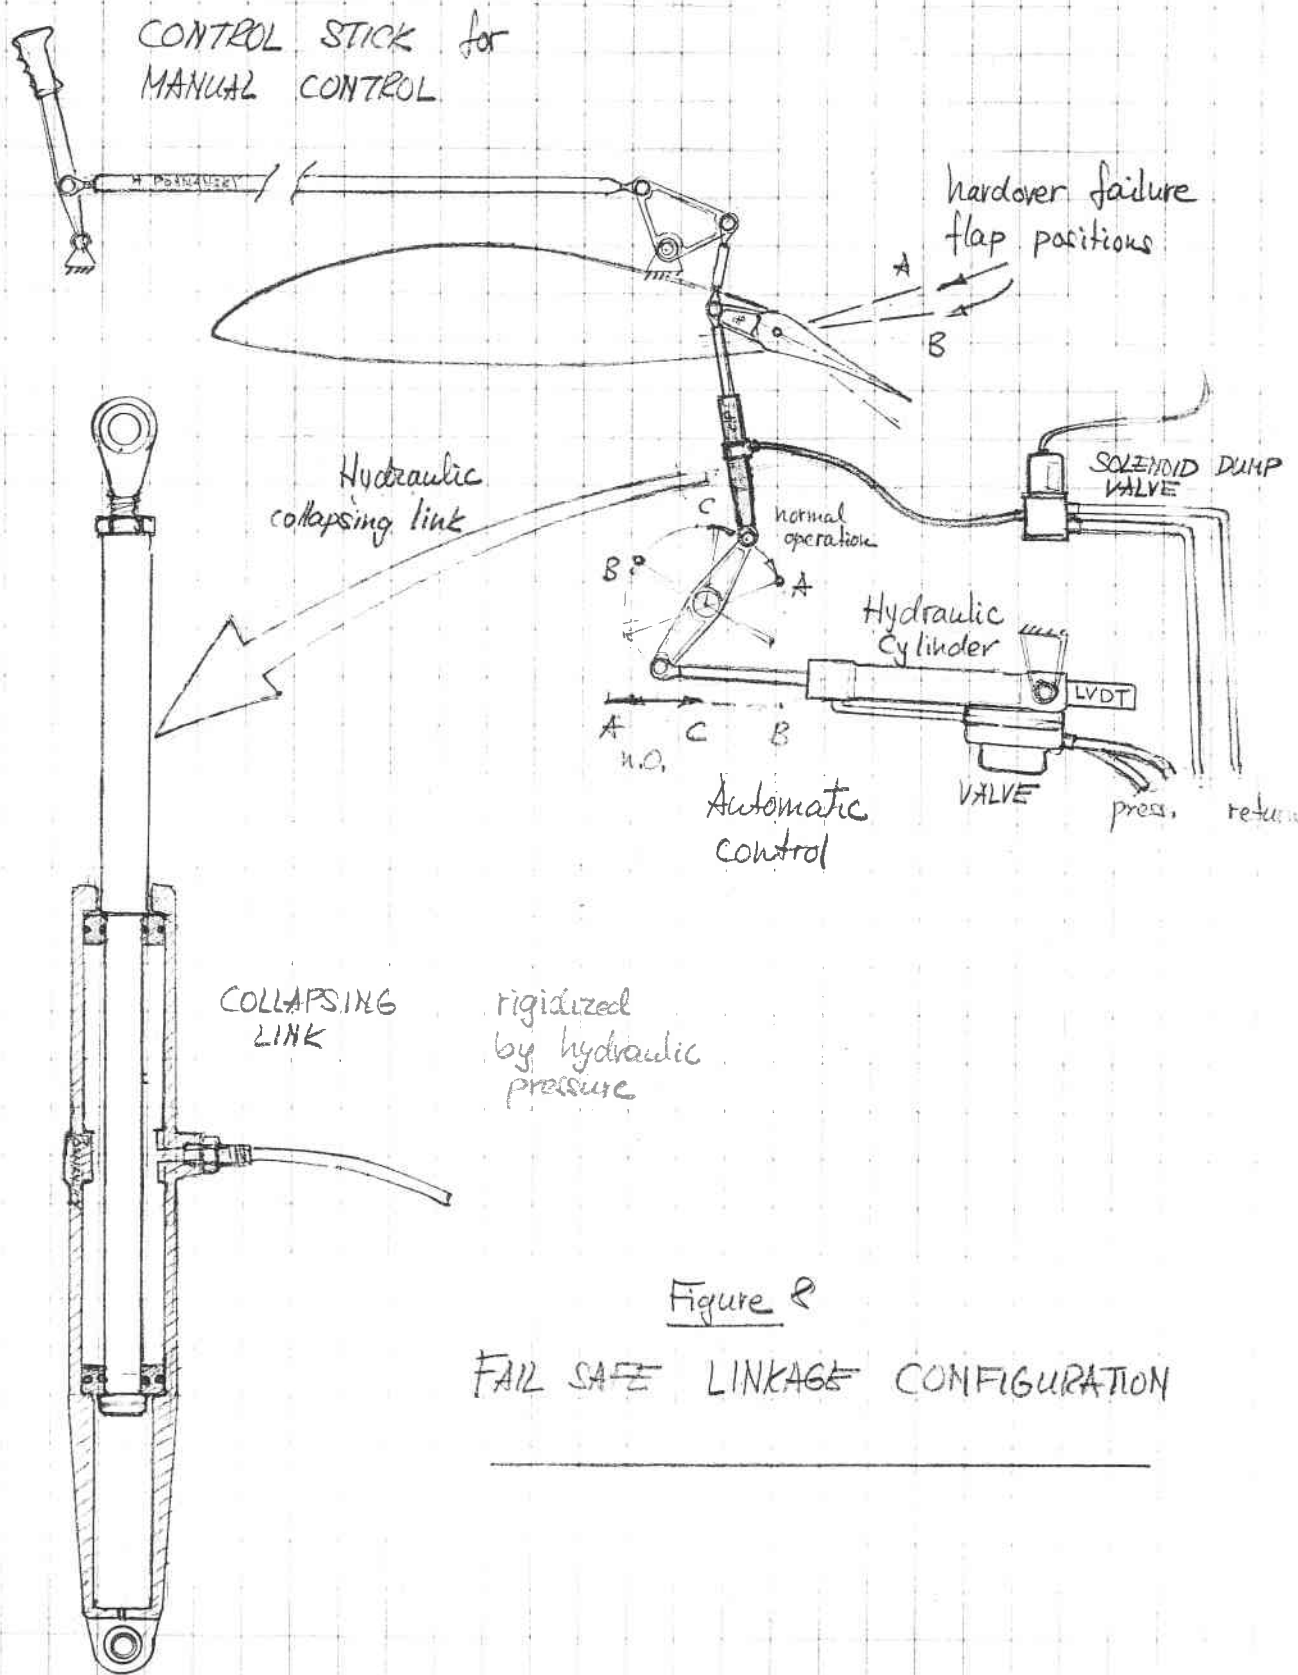 CONTROL STICK for
MANUAL CONTROL
hardover failure
flap positions
A
B
Hydraulic
collapsing link
SOLENOID DUMP
VALVE
C
normal
operation
B
A
Hydraulic
Cylinder
LVDT
A
C
B
n.o.
Automatic
control
VALVE
press.
return
COLLAPSING
LINK
rigidized
by hydraulic
pressure
Figure 8
FAIL SAFE LINKAGE CONFIGURATION